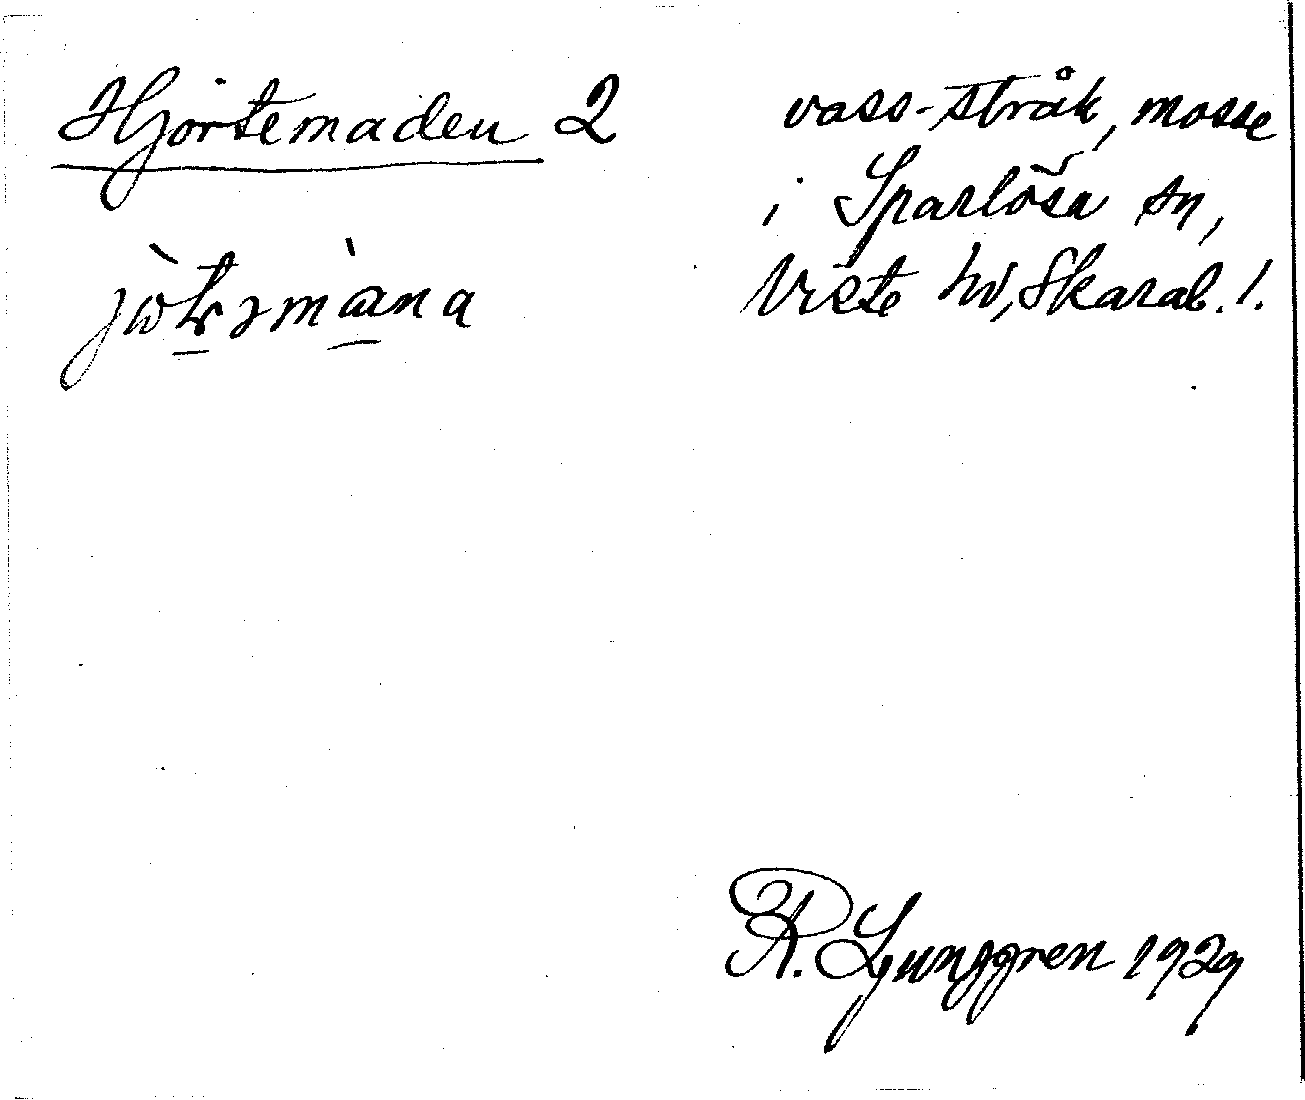 Hjortemaden 2
vass-stråk, mosse
i Sparlösa sn,
Viste hd, Skarab. l.
R. Ljunggren 1929